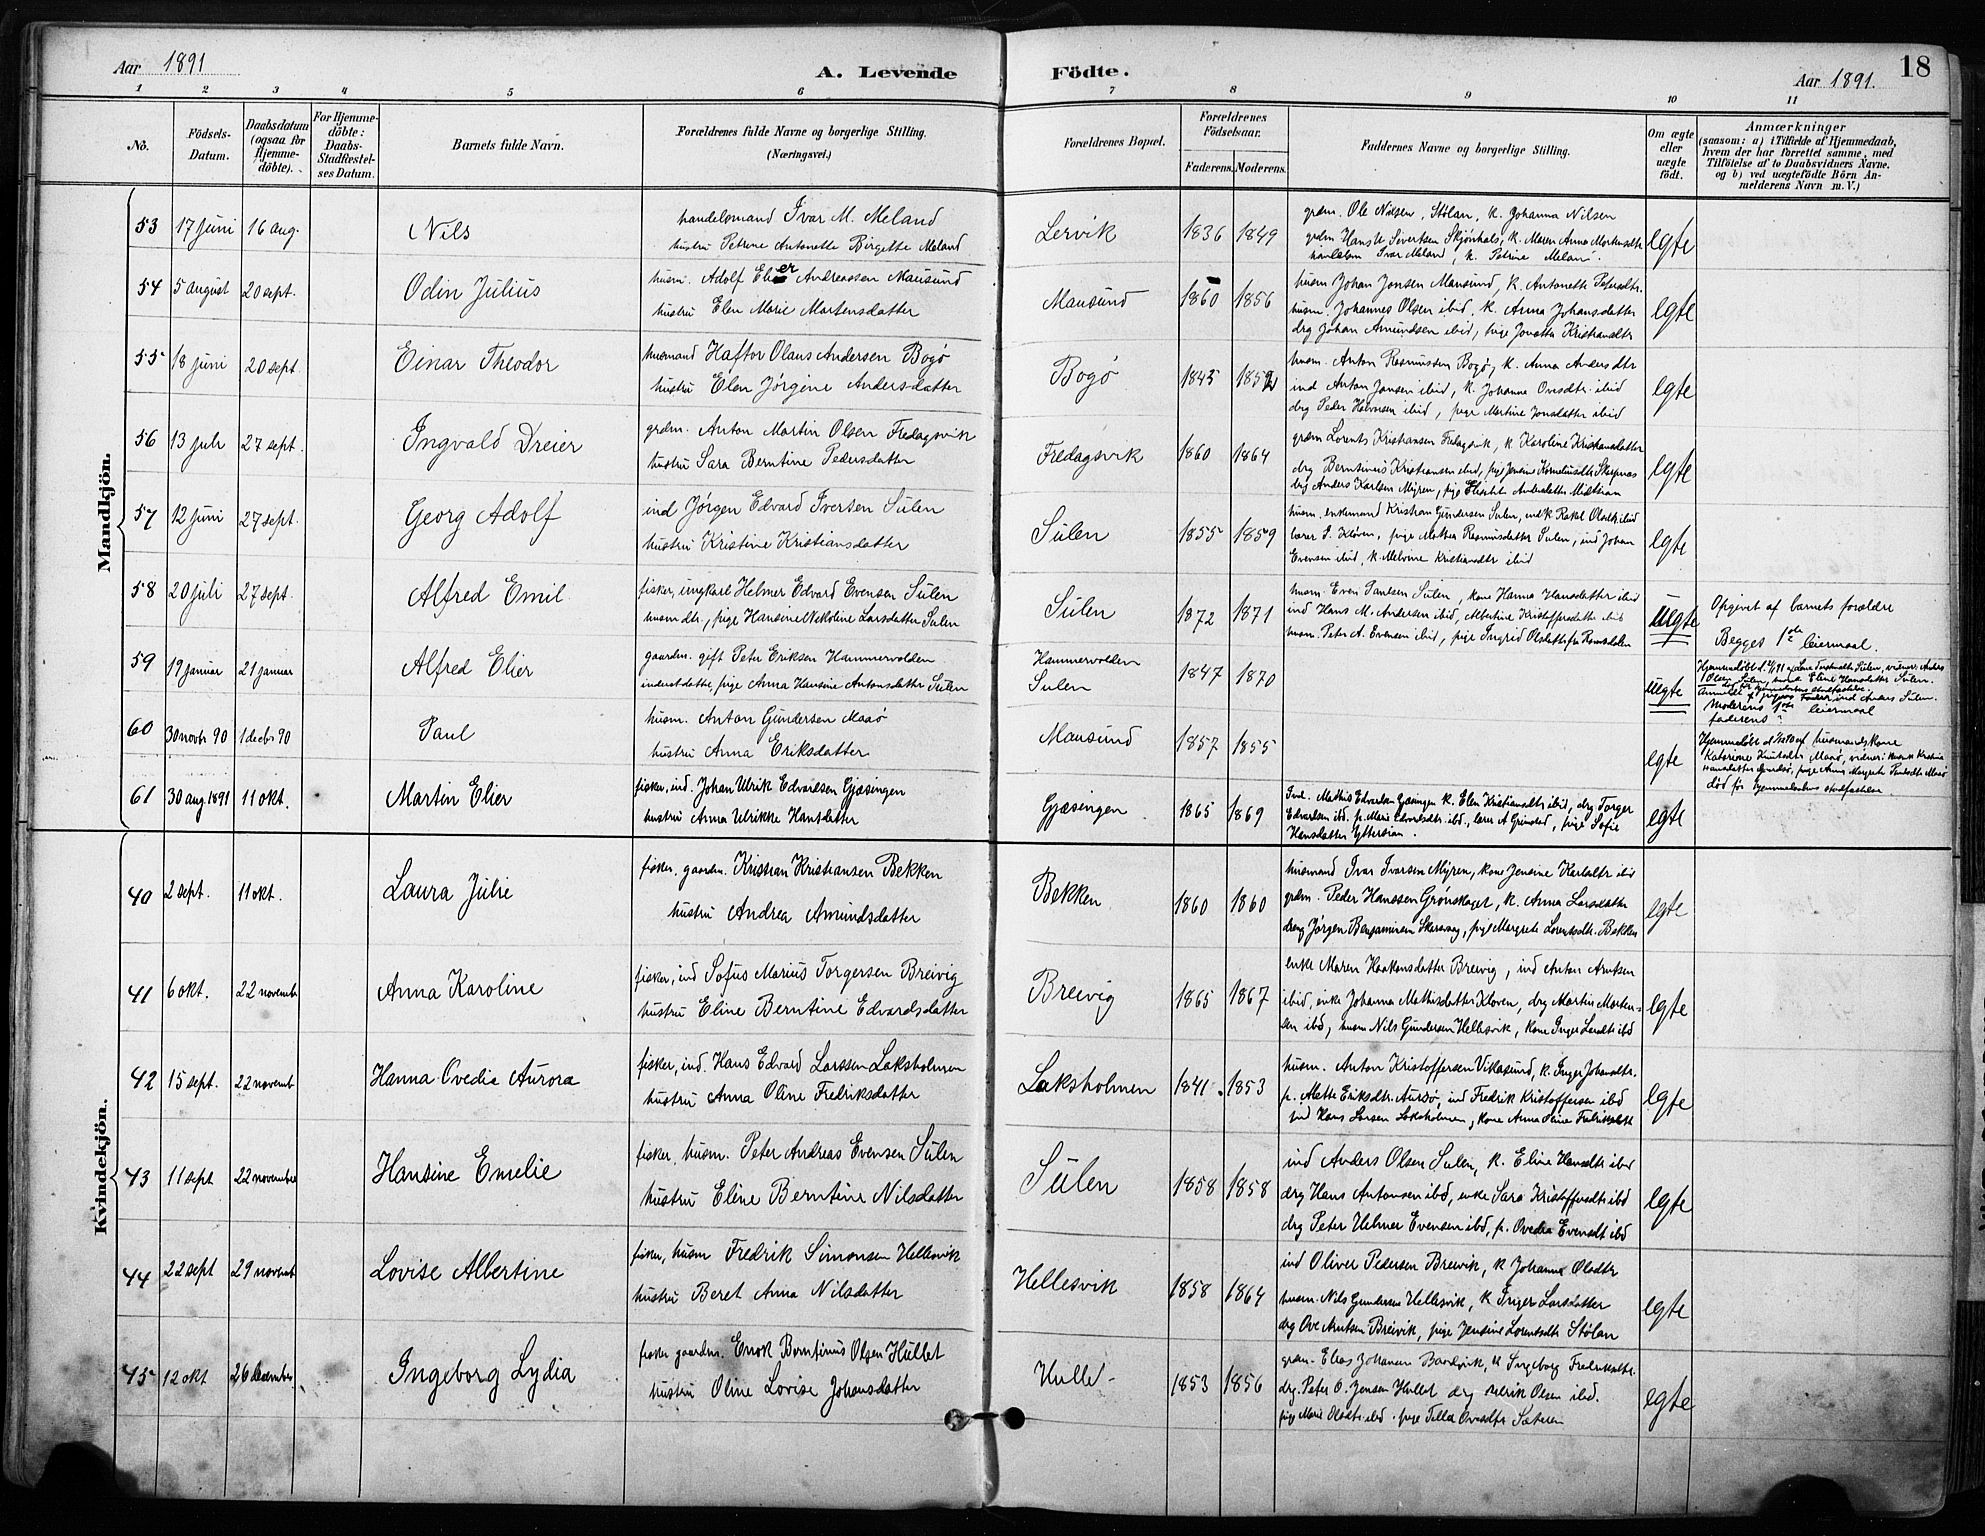 Aar 1891
A. Levende
Födte.
Aar 1891.
18
1 2 3 4 5 6 7 8 9 10 11
No.
Födsels-Datum.
Daabsdatum (ogsaa for Hjemme-döbte).
For Hjemme-döbte: Daabs-Stadfæstel-ses Datum.
Barnets fulde Navn.
Forældrenes fulde Navne og borgerlige Stilling. (Næringsvei.)
Forældrenes Bopæl.
Forældrenes Födselsaar.
Faderens. Moderens.
Faddernes Navne og borgerlige Stilling.
Om ægte eller uægte födt.
Anmærkninger
(saasom: a) i Tilfælde af Hjemmedaab,
hvem der har forrettet samme, med
Tilföielse af to Daabsvidners Navne.
og b) ved uægtefödte Börn An-
melderens Navn m. V.)
Mandkjön.
53 17 juni 16 aug. Nils
handelsmand Ivar M. Meland
hustru Petrine Antonette Birgette Meland
Lervik 1836 1849
grdm. Ole Nilsen, Stølan, k. Johanna Nilsen
grdm Hans U Sivertsen Skjønhals, k. Maren Anna Mortensdtr
handelsm Ivar Meland, k. Petrine Meland.
egte
54 5 august 20 sept. Odin Julius
husm. Adolf Elier Andreassen Mausund
hustru Elen Marie Martensdatter
Mausund 1860 1856
husm Johan Jonsen Mausund, k. Antonette Petersdtr.
husm. Johannes Olsen ibid, k. Anna Johansdatter
drg Johan Amundsen ibid, pige Jonetta Kristiansdtr
egte
55 18 juni 20 sept. Einar Theodor
husmand Haftor Olaus Andersen Bogø
hustru Elen Jørgine Andersdatter
Bogø 1845 1852
husm. Anton Rasmussen Bogø, k. Anna Andersdtr
ind Anton Jansen ibid, k. Johanna Ovesdtr. ibid
drg Peder Halvnsen ibid, pige Martine Jonsdatter ibid
egte
56 13 juli 27 sept. Ingvald Dreier
grdm. Anton Martin Olsen Fredagsvik
hustru Sara Berntine Pedersdatter
Fredagsvik 1860 1864
grdm Lorents Kristiansen Fredagsvik, k Karoline Kristiansdatter
drg Berntinius Kristiansen ibid, pige Jensine Korneliusdtr
drg Anders Karlsen Myren, pige
egte
57 12 juni 27 sept. Georg Adolf
ind Jørgen Edvard Iversen Sulen
hustru Kristine Kristiansdatter
Sulen 1855 1859
husm. enkemand Kristian Gundersen Sulen, indk Rakel Olsdtr ibid
lærer J. Kløven, pige Mathea Rasmusdatter Sulen, ind Johan
Evensen ibid, k. Melvine Kristiansdtr ibid
egte
58 20 juli 27 sept. Alfred Emil
fisker, ungkarl Helmer Edvard Evensen Sulen
husm dtr., pige Hansine Nekoline Larsdatter Sulen
Sulen 1872 1871
husm. Even Paulsen Sulen, kone Hanna Hansdatter ibid
ind Hans M. Andersen ibid, Albertine Kristoffersdatter ibid
husm. Peter A. Evensen ibid, pige Ingrid Olsdatter fra Romsdalen
Uegte
Opgivet af barnets forældre
Begges 1ste leiermaal.
59 19 januar 21 januar Alfred Elier
gaardm. gift Peter Eriksen Hammervolden
inderstdatter, pige Anna Hansine Antonsdatter Sulen
Hammervolden
Sulen 1847 1870
uegte
Moderens 1ste leiermaal
faderens ?
60 30 novbr 90 1 decbr 90 Paul
husm. Anton Gundersen Maaø
hustru Anna Eriksdatter
Mausund 1857 1855
egte
død før hjemmedaabens stadfæstelse
61 30 aug. 1891 11 okt. Martin Elier
fisker, ind. Johan Ulrik Edvardsen Gjæsingen
hustru Anna Ulrikke Hansdatter
Gjæsingen 1865 1869
Ind. Mathis Edvardsen Gjæsingen k. Elen Kristiansdtr ibid, drg Torger
Edvardsen ibd. p. Marie Edvardsdtr. ibd., lærer A Grimstad, pige Sofie
Hansdatter Ytterøian.
egte
Kvindekjön.
40 2 sept. 11 okt. Laura Julie
fisker, gaardm. Kristian Kristiansen Bekken
hustru Andrea Amundsdatter
Bekken 1860 1860
husmand Ivar Ivarsen Myren, kone Jensine Karlsdtr ibd
grdm. Peder Hanssen Grønskaget, k. Anna Larsdatter
dreng Jørgen Benjaminsen Skarsvaag, pige Margrete Lorentsdtr. Bekken
egte
41 6 okt. 22 novembr Anna Karoline
fisker, ind Sofus Marius Torgersen Breivig
hustru Eline Berntine Edvardsdatter
Breivig 1865 1867
enke Maren Haakonsdatter Breivig, ind Anton Arntsen
ibid, enke Johanna Mathisdatter Kløven, drg Martin Morten-
sen ibd, husm Nils Gundersen Hellesvik, kone Inger Larsdtr ibd
egte
42 15 sept. 22 novemb Hanna Ovedia Aurora
fisker, ind. Hans Edvard Larssen Laksholmen
hustru Anna Oline Fredriksdatter
Laksholmen 1841. 1853
husm. Anton Kristoffersen Vikasund, k. Inger Johansdtr.
p. Mette Eriksdtr. Aursø, ind Fredrik Kristoffersen ibd
ind Hans Larsen Laksholmen, kone Anna Oline Fredriksdtr
egte
43 11 sept 22 november Hansine Emelie
fisker, husm. Peter Andreas Evensen Sulen
hustru Eline Berntine Nilsdatter
Sulen 1858 1858
ind Anders Olsen Sulen, k. Eline Hansdtr ibd
drg Hans Antonsen ibd, enke Sara Kristoffersdtr ibd
drg Peter Helmer Evensen ibd, p. Ovedia Evensdt ibd
egte
44 22 sept 29 novemb Lovise Albertine
fisker, husm Fredrik Simonsen Hellesvik
hustru Beret Anna Nilsdatter
Hellesvik 1858 1864
ind Oliver Pedersen Breivik, k Johanna Olsdtr
husm. Nils Gundersen Hellesvik, k Inger Larsdatter
drg Ove Arntsen Breivik, pige Jensine Lorentsdtr Stølan
egte
45 12 okt 26 desember Ingeborg Lydia
fisker gaardm. Enok Berntinus Olsen Hullet
hustru Oline Lovise Johansdatter
Hullet 1853 1856
grdm. Elias Johansen, k Ingeborg Fredriksdtr.
drg. Peter O. Jensen Hullet drg Ulrik Olsen ibd.
pige Marie Olsdtr. ibd. pige Tilla Ovesdtr Sæteren
egte